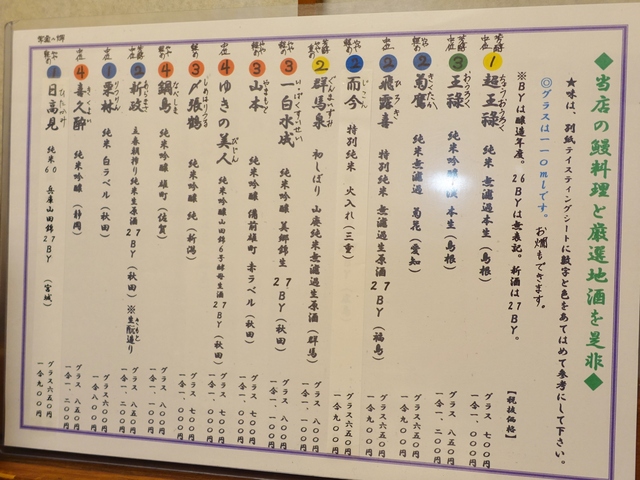 ◆当店の鰻料理と厳選地酒を是非◆
★味は、別紙テイスティングシートに数字と色をあてはめて参考にして下さい。
◎グラスは一一〇mlです。お燗もできます。
※BYは醸造年度。26BYは無表記。新酒は27BY。
【税抜価格】
芳醇 中位 1 超王禄 ちょうおうろく 純米 無濾過本生（島根） グラス 七〇〇円 一合一、〇〇〇円
芳醇 中位 3 王禄 おうろく 純米吟醸 渓 本生（島根） グラス 八五〇円 一合一、二〇〇円
2 菊鷹 きくたか 純米無濾過 菊花（愛知） グラス六五〇円 一合九〇〇円
芳醇 中位 2 飛露喜 ひろき 特別純米 無濾過生原酒27BY（福島） グラス六五〇円 一合九〇〇円
2 而今 じこん 特別純米 火入れ（三重） グラス六五〇円 一合九〇〇円
芳醇 2 群馬泉 ぐんまいずみ 初しぼり 山廃純米無濾過生原酒（群馬） グラス 八〇〇円 一合一、一〇〇円
3 一白水成 いっぱくすいせい 純米吟醸 美郷錦生 27BY（秋田） グラス 八〇〇円 一合一、一〇〇円
3 山本 やまもと 純米吟醸 備前雄町 赤ラベル（秋田） グラス 七〇〇円 一合一、〇〇〇円
中位 4 ゆきの美人 びじん 純米吟醸山田錦6号酵母生酒27BY（秋田） グラス 七〇〇円 一合一、〇〇〇円
3 〆張鶴 しめはりつる 純米吟醸 純（新潟） グラス 七〇〇円 一合一、〇〇〇円
中位 4 鍋島 なべしま 純米吟醸 雄町（佐賀） グラス 八〇〇円 一合一、一〇〇円
芳醇 中位 2 新政 あらまさ 立春朝搾り純米生原酒27BY（秋田）※生酛造り きもと グラス 八五〇円 一合一、二〇〇円
中位 1 栗林 りつりん 純米 白ラベル（秋田） グラス六〇〇円 一合八〇〇円
中位 4 喜久酔 きくよい 純米吟醸（静岡） グラス 八五〇円 一合一、二〇〇円
1 日高見 ひたかみ 純米60 兵庫山田錦27BY（宮城） グラス六五〇円 一合九〇〇円